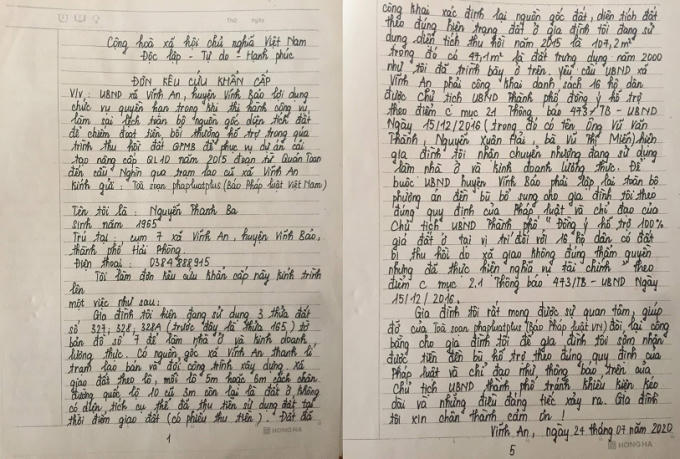 Thứ ngày
Cộng hoà xã hội chủ nghĩa Việt Nam
Độc lập - Tự do - Hạnh phúc
ĐƠN KÊU CỨU KHẨN CẤP
V/v: UBND xã Vĩnh An, huyện Vĩnh Bảo lợi dụng
chức vụ quyền hạn trong khi thi hành công vụ,
làm sai lệch toàn bộ nguồn gốc diện tích đất
để chiếm đoạt tiền bồi thường hỗ trợ trong quá
trình thu hồi đất GPMB để phục vụ dự án cải
tạo nâng cấp QL10 năm 2015 đoạn từ Quán Toan
đến cầu Nghìn qua trạm lao cũ xã Vĩnh An
Kính gửi: Toà soạn phapluatplus (Báo Pháp luật Việt Nam)
Tên tôi là: Nguyễn Thanh Ba
Sinh năm 1965
Trú tại: cụm 7 xã Vĩnh An, huyện Vĩnh Bảo,
thành phố Hải Phòng.
Điện thoại: 0384.888915
Tôi làm đơn kêu cứu khẩn cấp này kính trình
lên
một việc như sau:
Gia đình tôi hiện đang sử dụng 3 thửa đất
số 327; 328; 328A (trước đây là thửa 165) tờ
bản đồ số 7 để làm nhà ở và kinh doanh
lương thực. Có nguồn gốc xã Vĩnh An thanh lí
trạm lao bán và đổi công trình xây dựng. Xã
giao đất theo lô, mỗi lô 5m hoặc 6m cách chân
đường quốc lộ 10 cũ 3m còn lại là đất ở không
có diện tích cụ thể đã thu tiền sử dụng đất tại
thời điểm giao đất (có phiếu thu tiền). Đất đã
1
HONG HA
công khai xác định lại nguồn gốc đất, diện tích đất
theo đúng hiện trạng đất ở gia đình tôi đang sử
dụng diện tích thu hồi năm 2015 là 107,2m²
trong đó có 47,1m² là đất trưng dụng năm 2000
như tôi đã trình bày ở trên. Yêu cầu UBND xã
Vĩnh An phải công khai danh sách 16 hộ dân
được Chủ tịch UBND Thành phố đồng ý hỗ trợ
theo điểm c mục 2.1 Thông báo 473/TB - UBND
Ngày 15/12/2016 (trong đó có tên Ông Vũ Văn
Thành, Nguyễn Xuân Hải, bà Vũ Thị Miên) hiện
gia đình tôi nhận chuyển nhượng đang sử dụng
làm nhà ở và kinh doanh lương thực. Đề
buộc UBND huyện Vĩnh Bảo phải lập lại toàn bộ
phương án đền bù bổ sung cho gia đình tôi theo
đúng quy định của Pháp luật và chỉ đạo của
Chủ tịch UBND Thành phố "Đồng ý hỗ trợ 100%
giá đất ở tại vị trí đối với 16 hộ dân có đất
bị thu hồi do xã giao không đúng thẩm quyền
nhưng đã thực hiện nghĩa vụ tài chính theo
điểm c mục 2.1 Thông báo 473/TB - UBND Ngày
15/12/2016.
Gia đình tôi rất mong được sự quan tâm, giúp
đỡ của Toà soạn phapluatplus (Báo Pháp luật VN) đòi lại công
bằng cho gia đình tôi để gia đình tôi sớm nhận
được tiền đền bù hỗ trợ theo đúng quy định của
Pháp luật và chỉ đạo như thông báo trên của
Chủ tịch UBND thành phố tránh khiếu kiện kéo
dài và những điều đáng tiếc xảy ra. Gia đình
tôi xin chân thành cảm ơn!
Vĩnh An, ngày 24 tháng 07 năm 2020
5
HONG HA